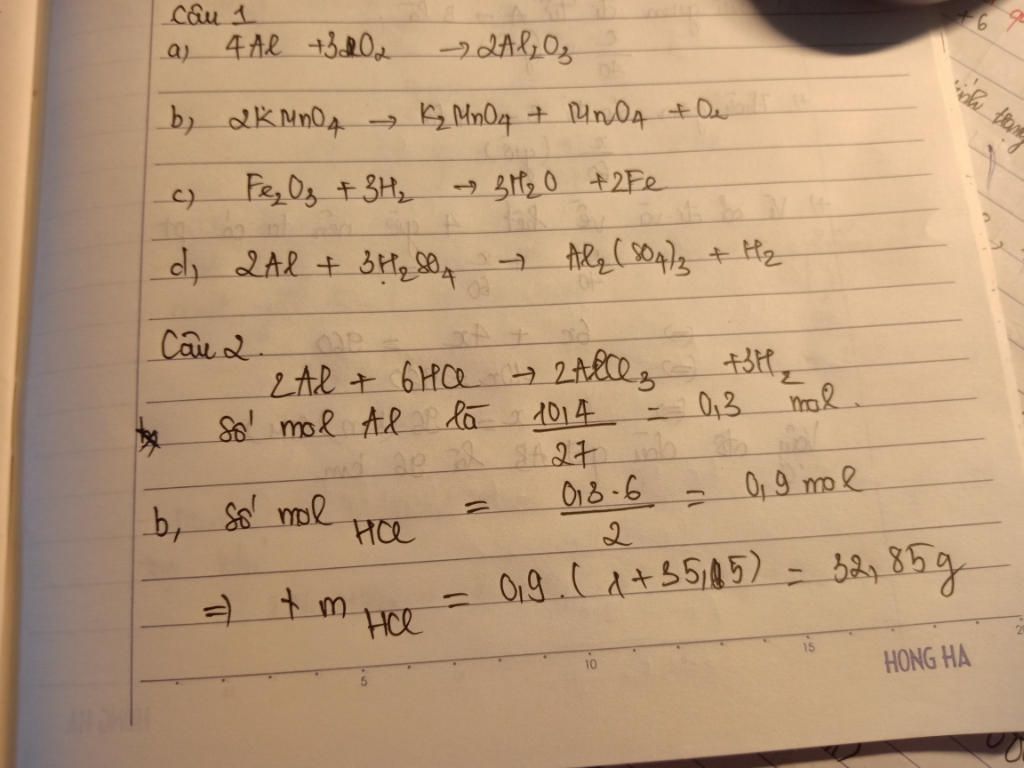 Câu 1
a) 4Al +3O₂ → 2Al₂O₃
b) 2KMnO₄ → K₂MnO₄ + MnO₄ + O₂
c) Fe₂O₃ + 3H₂ → 3H₂O + 2Fe
d) 2Al + 3H₂SO₄ → Al₂(SO₄)₃ + H₂
Câu 2.
2Al + 6HCl → 2AlCl₃ +3H₂
Số mol Al là 10,4/27 = 0,3 mol.
b, Số mol HCl = 0,3.6/2 = 0,9 mol
=> + m HCl = 0,9.(1+35,5) = 32,85g
5 10 15
HONG HA